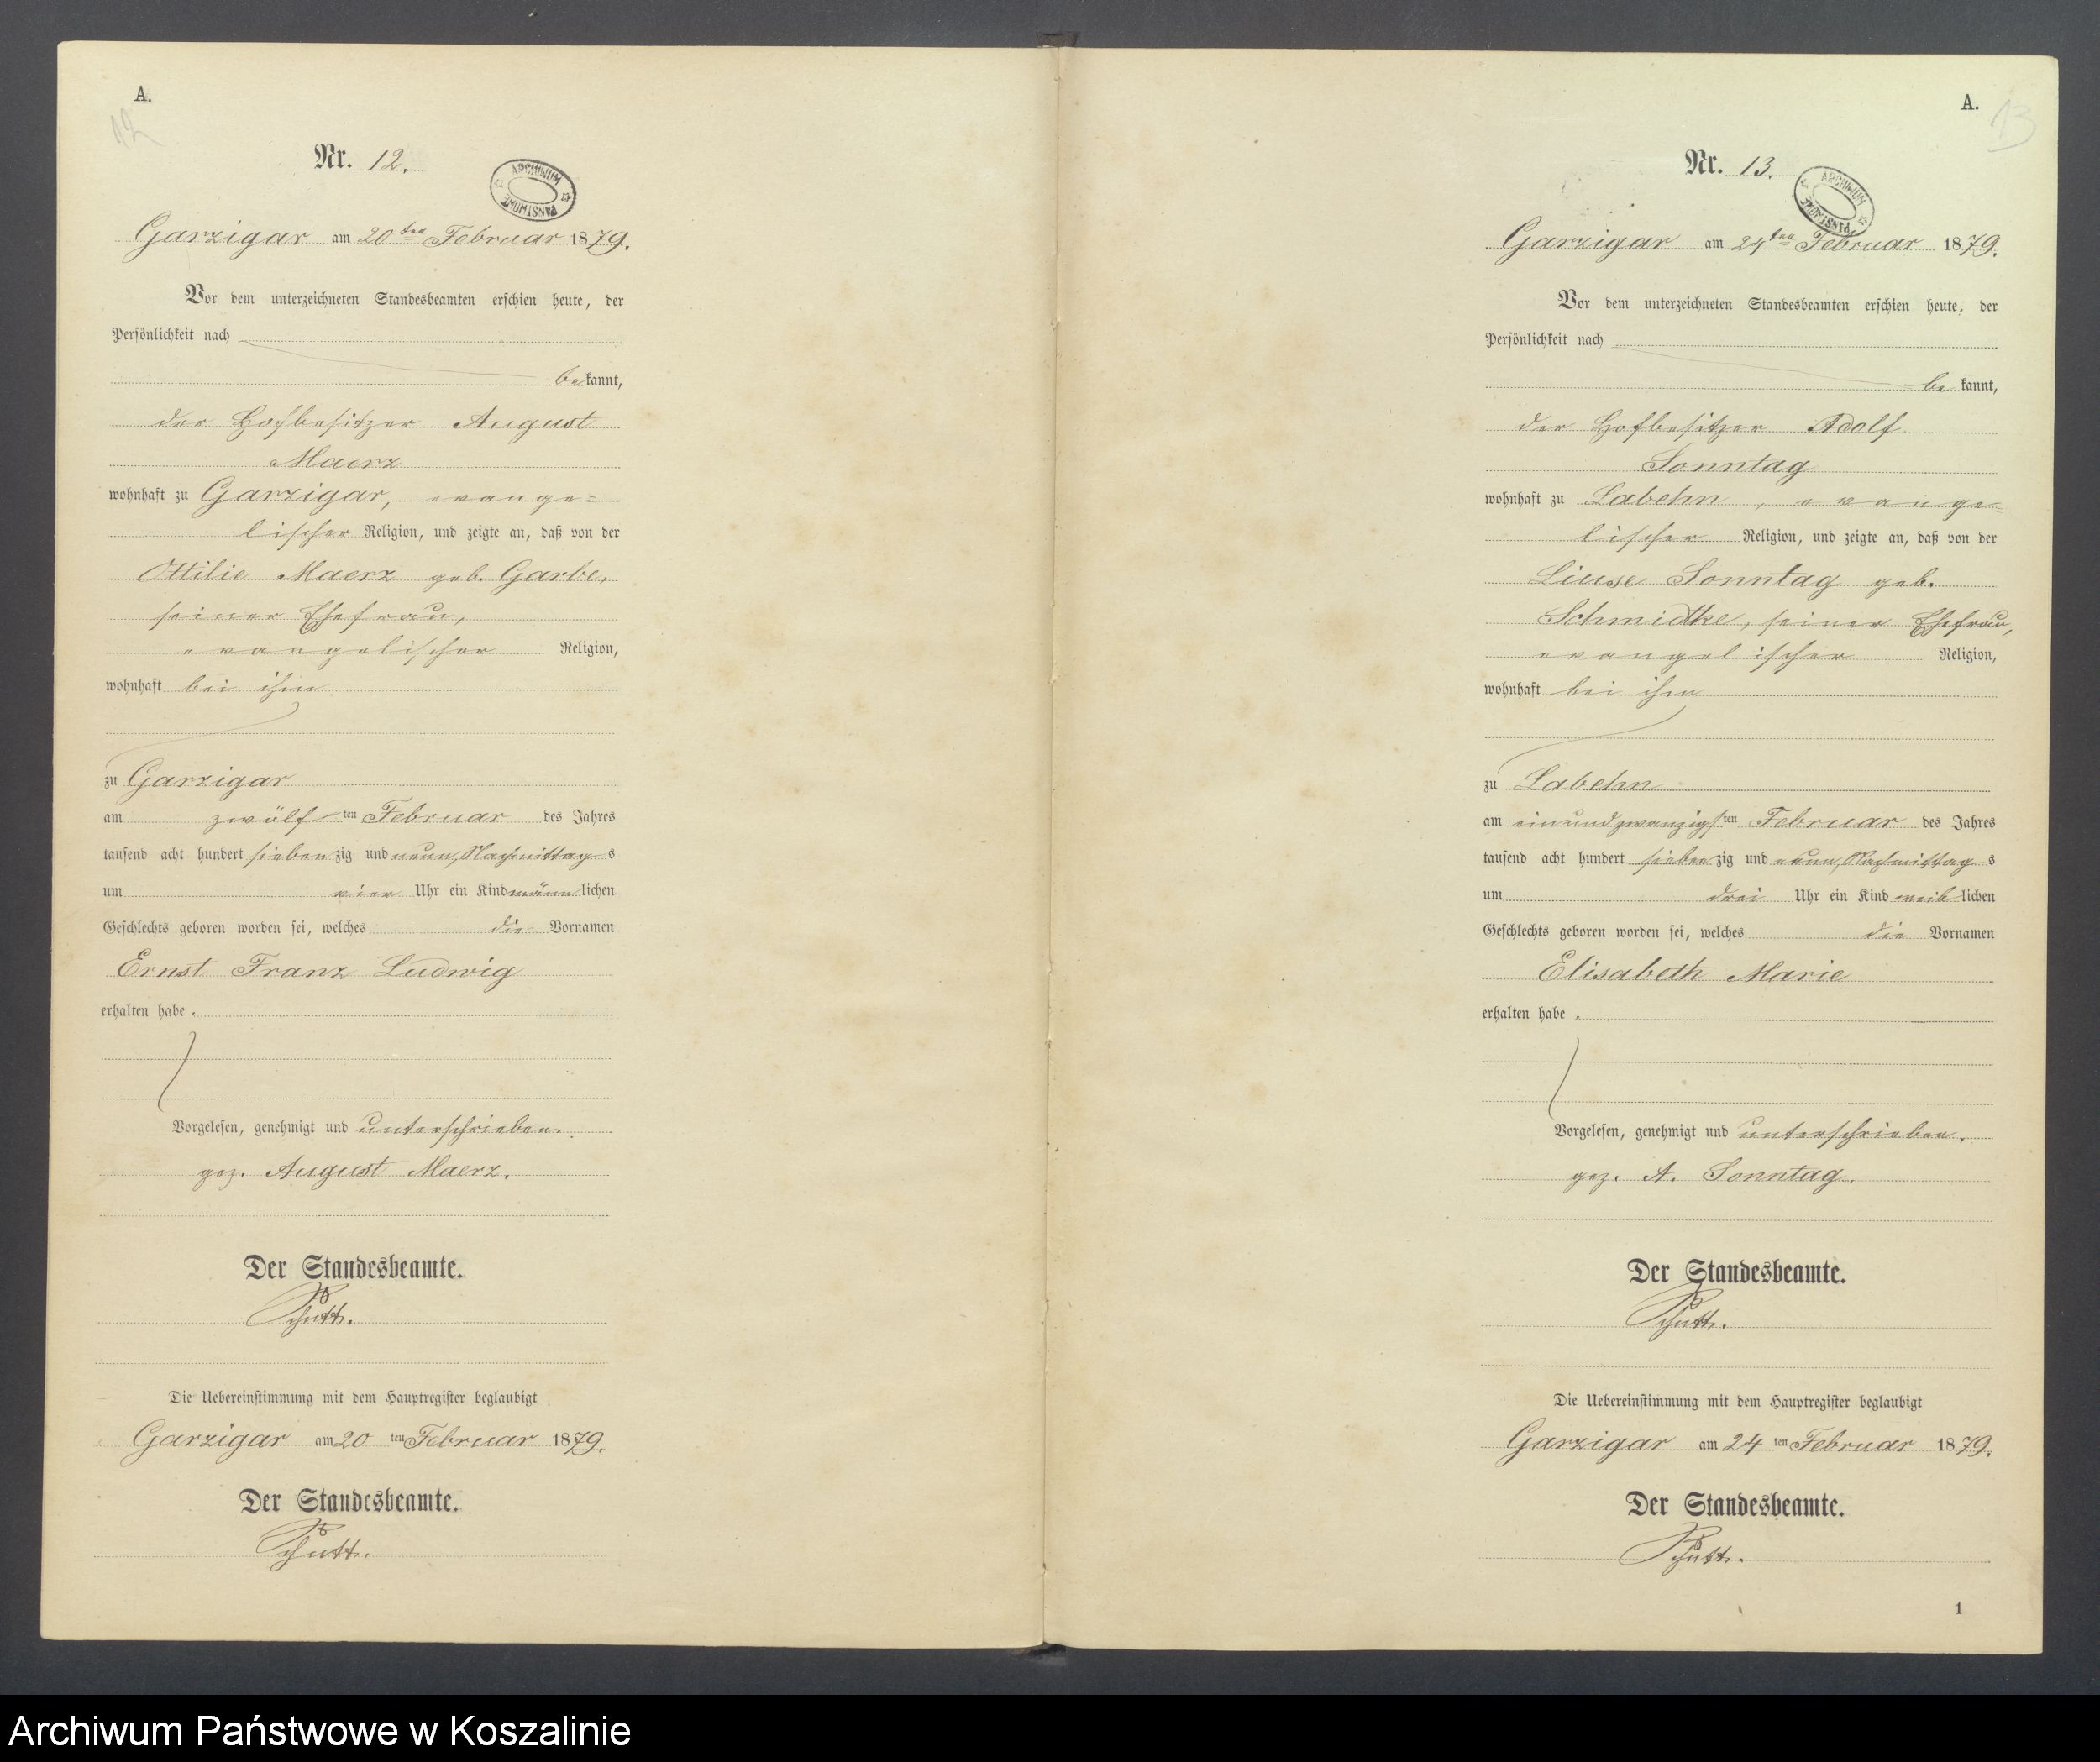 A.
12
Nr. 12.
ARCHIWUM PAŃSTWOWE
Garzigar am 20ten Februar 1879.
Vor dem unterzeichneten Standesbeamten erschien heute, der
Persönlichkeit nach
bekannt,
der Hofbesitzer August
Maerz
wohnhaft zu Garzigar, evange=
lischer Religion, und zeigte an, daß von der
Ottilie Maerz geb. Garbe,
seiner Ehefrau,
evangelischer Religion,
wohnhaft bei ihm
zu Garzigar
am zwölften Februar des Jahres
tausend acht hundert siebenzig und neun, Nachmittags
um vier Uhr ein Kind männlichen
Geschlechts geboren worden sei, welches die Vornamen
Ernst Franz Ludwig
erhalten habe.
Vorgelesen, genehmigt und unterschrieben.
gez. August Maerz.
Der Standesbeamte.
Die Uebereinstimmung mit dem Hauptregister beglaubigt
Garzigar am 20ten Februar 1879.
Der Standesbeamte.
A.
13
Nr. 13.
ARCHIWUM PAŃSTWOWE
Garzigar am 24ten Februar 1879.
Vor dem unterzeichneten Standesbeamten erschien heute, der
Persönlichkeit nach
bekannt,
der Hofbesitzer Adolf
Sonntag
wohnhaft zu Labehn, evange=
lischer Religion, und zeigte an, daß von der
Liuse Sonntag geb.
Schmidtke, seiner Ehefrau,
evangelischer Religion,
wohnhaft bei ihm
zu Labehn
am einundzwanzigsten Februar des Jahres
tausend acht hundert siebenzig und neun, Nachmittags
um drei Uhr ein Kind weiblichen
Geschlechts geboren worden sei, welches die Vornamen
Elisabeth Marie
erhalten habe.
Vorgelesen, genehmigt und unterschrieben.
gez. A. Sonntag.
Der Standesbeamte.
Die Uebereinstimmung mit dem Hauptregister beglaubigt
Garzigar am 24ten Februar 1879.
Der Standesbeamte.
1
Archiwum Państwowe w Koszalinie